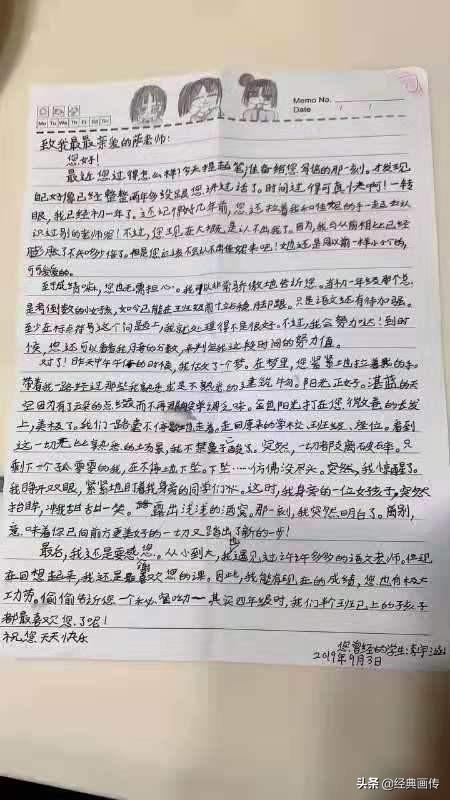 Memo No.
Mo Tu We Th Fr Sa Su
Date / /
致我最最亲爱的 老师:
您好!
最近您过得怎么样?今天提起笔准备给您写信的那一刻,才发现
自己好像已经整整两年多没跟您讲过话了。时间过得可真快啊!一转
眼,我已经初一年了。还记得好几年前,您还拉着我和 的手一起去认
识过别的老师呢!不过,您现在大概是认不出我了。因为,我与从前相比已经
膨胀了不知多少倍了。但是您应该不会认不出佳妮来吧!她还是同以前一样小小个的,
可可爱爱的。
至于成绩嘛,您也无需担心。我可以非常骄傲地告诉您。当初一年级那个总
是考倒数的小女孩,如今已能在班级前十站稳脚跟。只是语文还有待加强。
至少在标点符号这个问题上,我就处理得不是很好。不过,我会努力哒!到时
候,您还可以看看我月考的分数,来判定我这段时间的努力值。
对了!昨天中午 的时候,我依次了个梦。在梦里,您紧紧地拉着我的手。
带着我一路经过那些我熟悉或是不熟悉的建筑物。阳光正好。湛蓝的天
空因为有了云朵的点缀而不再 单调乏味。金色阳光打在您微卷的长发
上,美极了。我们一路 走着。走回原来的学校、班级、座位。看到
这一切无比熟悉的场景,我不禁鼻子酸了。突然,一切都支离破碎。只
剩下一个孤零零的我,在不停地下坠。下坠……仿佛没尽头。突然,我惊醒了。
我睁开双眼,紧紧地盯着我身旁的同学们 。这时,我身旁的一位女孩子,突然
抬眸,冲我甜甜一笑。 露出浅浅的酒窝。那一刻,我突然明白了。离别,
意味着你已向前方更美好的一切又踏出了新的一步!
最后,我还是要感谢您。从小到大,我遇见过许许多多的语文老师。但现
在回想起来,我还是最喜欢您的课。因此,我能有现在的成绩,您也有极大
功劳。偷偷告诉您一个 — 其实四年级时,我们半个班以上的孩子
都最喜欢您了呢!
祝您天天快乐
您曾经的学生:
2019年9月3日
头条 @经典画传